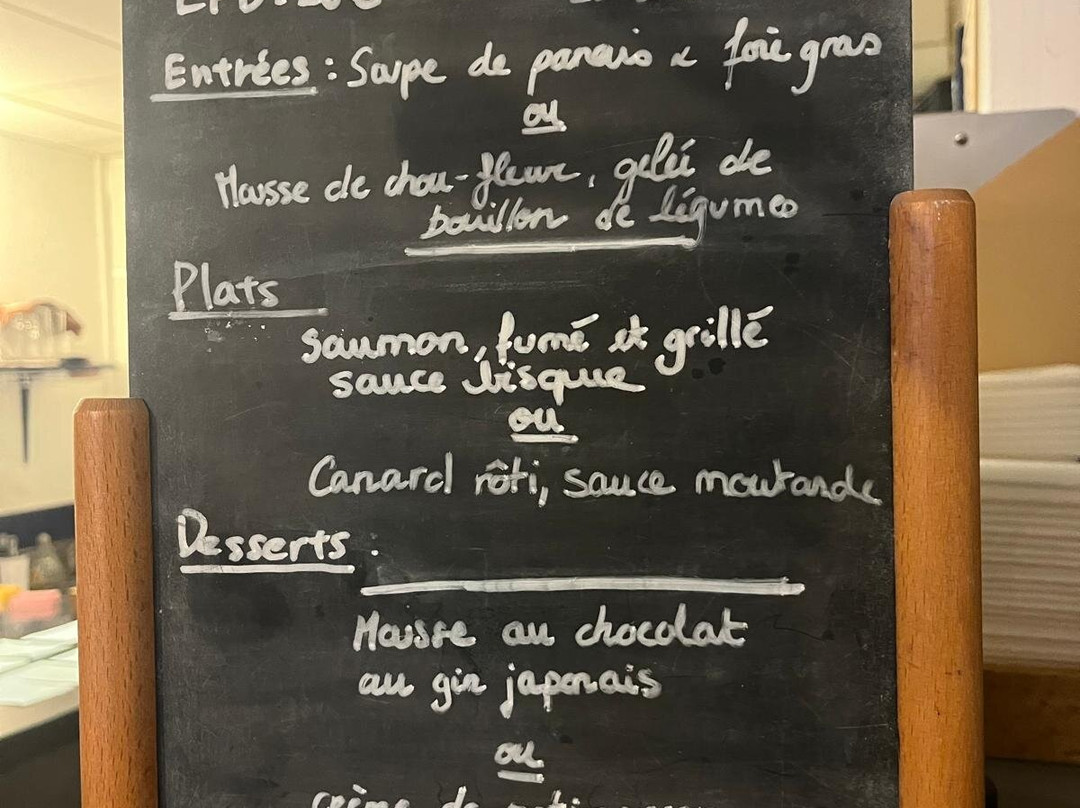 Entrées : Soupe de panais & foie gras
ou
Mousse de chou-fleur, gelée de
bouillon de légumes
Plats
saumon, fumé et grillé
sauce bisque
ou
Canard rôti, sauce moutarde
Desserts :
Mousse au chocolat
au gin japonais
ou
crème de